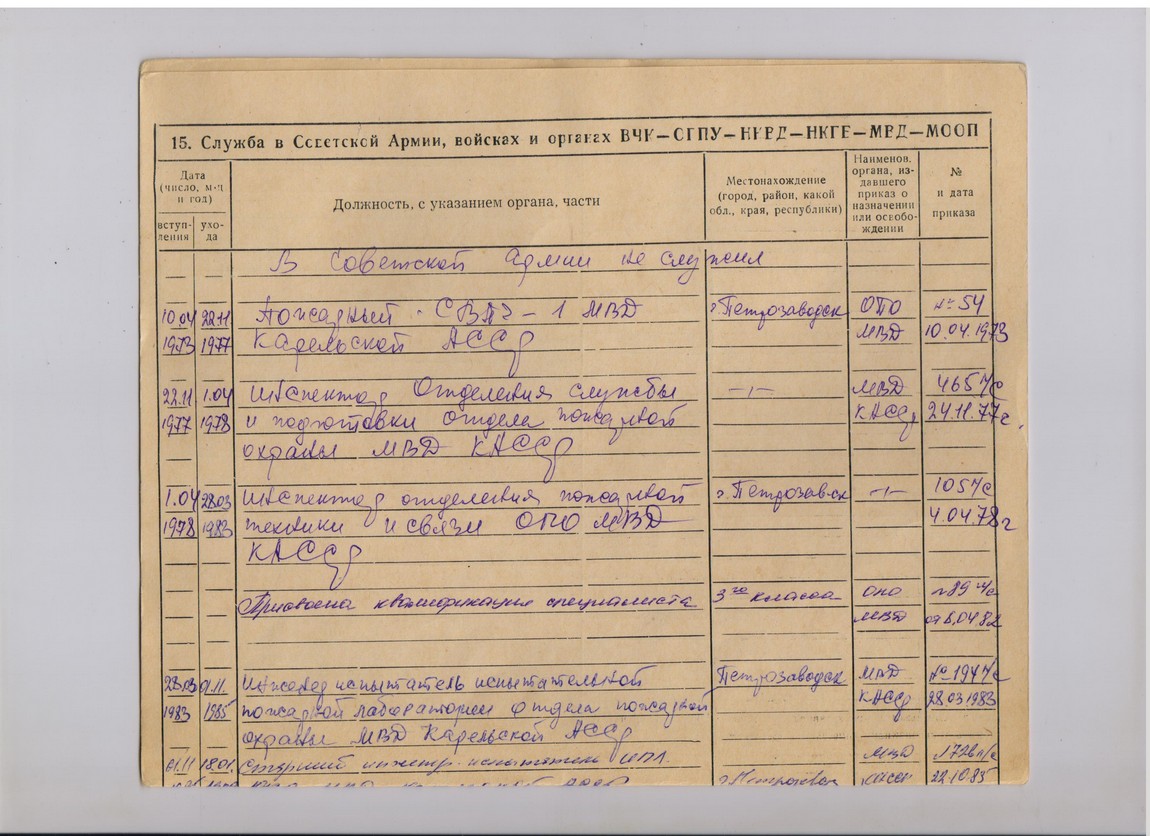 15. Служба в Советской Армии, войсках и органах ВЧК—ОГПУ—НКВД—НКГБ—МВД—МООП
Дата
(число, м-ц
и год)
вступ-
ления
ухо-
да
Должность, с указанием органа, части
Местонахождение
(город, район, какой
обл., края, республики)
Наименов.
органа, из-
давшего
приказ о
назначении
или освобо-
ждении
№
и дата
приказа
В Советской Армии не служил
10.04 22.11 Пожарный СВПЧ-1 МВД г. Петрозаводск ОПО № 54
1973 1977 Карельской АССР МВД 10.04.1973
22.11 1.04 Инспектор Отделения службы —"— МВД 465 л/с
1977 1978 и подготовки отдела пожарной КАССР 24.11.77г.
охраны МВД КАССР
1.04 28.03 Инспектор отделения пожарной г. Петрозав-ск —"— 105 л/с
1978 1983 техники и связи ОПО МВД 4.04.78г
КАССР
Присвоена квалификация специалиста 3го класса ОПО №89 л/с
МВД от 6.04.82
28.03 01.11. Инженер испытатель испытательной Петрозаводск МВД № 194 л/с
1983 1985 пожарной лаборатории Отдела пожарной КАССР 28.03.1983
охраны МВД Карельской АССР
01.11 18.01. Старший инженер-испытатель ИПЛ. МВД 172 л/с
г. Петрозаводск КАССР 22.10.85